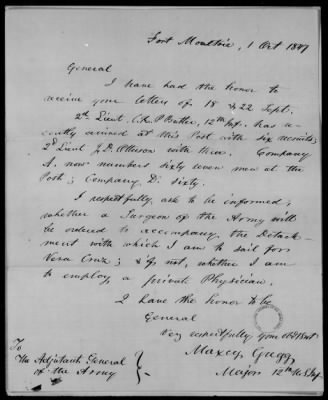 Fort Moultrie, 1 Oct 1847
General
I have had the honor to
receive your letters of 18 & 22 Sept.
2d Lieut. C. P. Butler, 12th Inf. has re-
cently arrived at this Post with six recruits;
2d Lieut J. D. with them. Company
A. now numbers sixty seven men at the
Post; Company D. sixty.
I respectfully, ask to be informed,
whether a Surgeon of the Army will
be ordered to accompany the Detach-
ment with which I am to sail for
Vera Cruz; & if not, whether I am
to employ a private Physician.
I have the honor to be
General
Very respectfully your Obt Svt
Maxcy Gregg
Major 12th U.S. Inf
To
The Adjutant General
of the Army